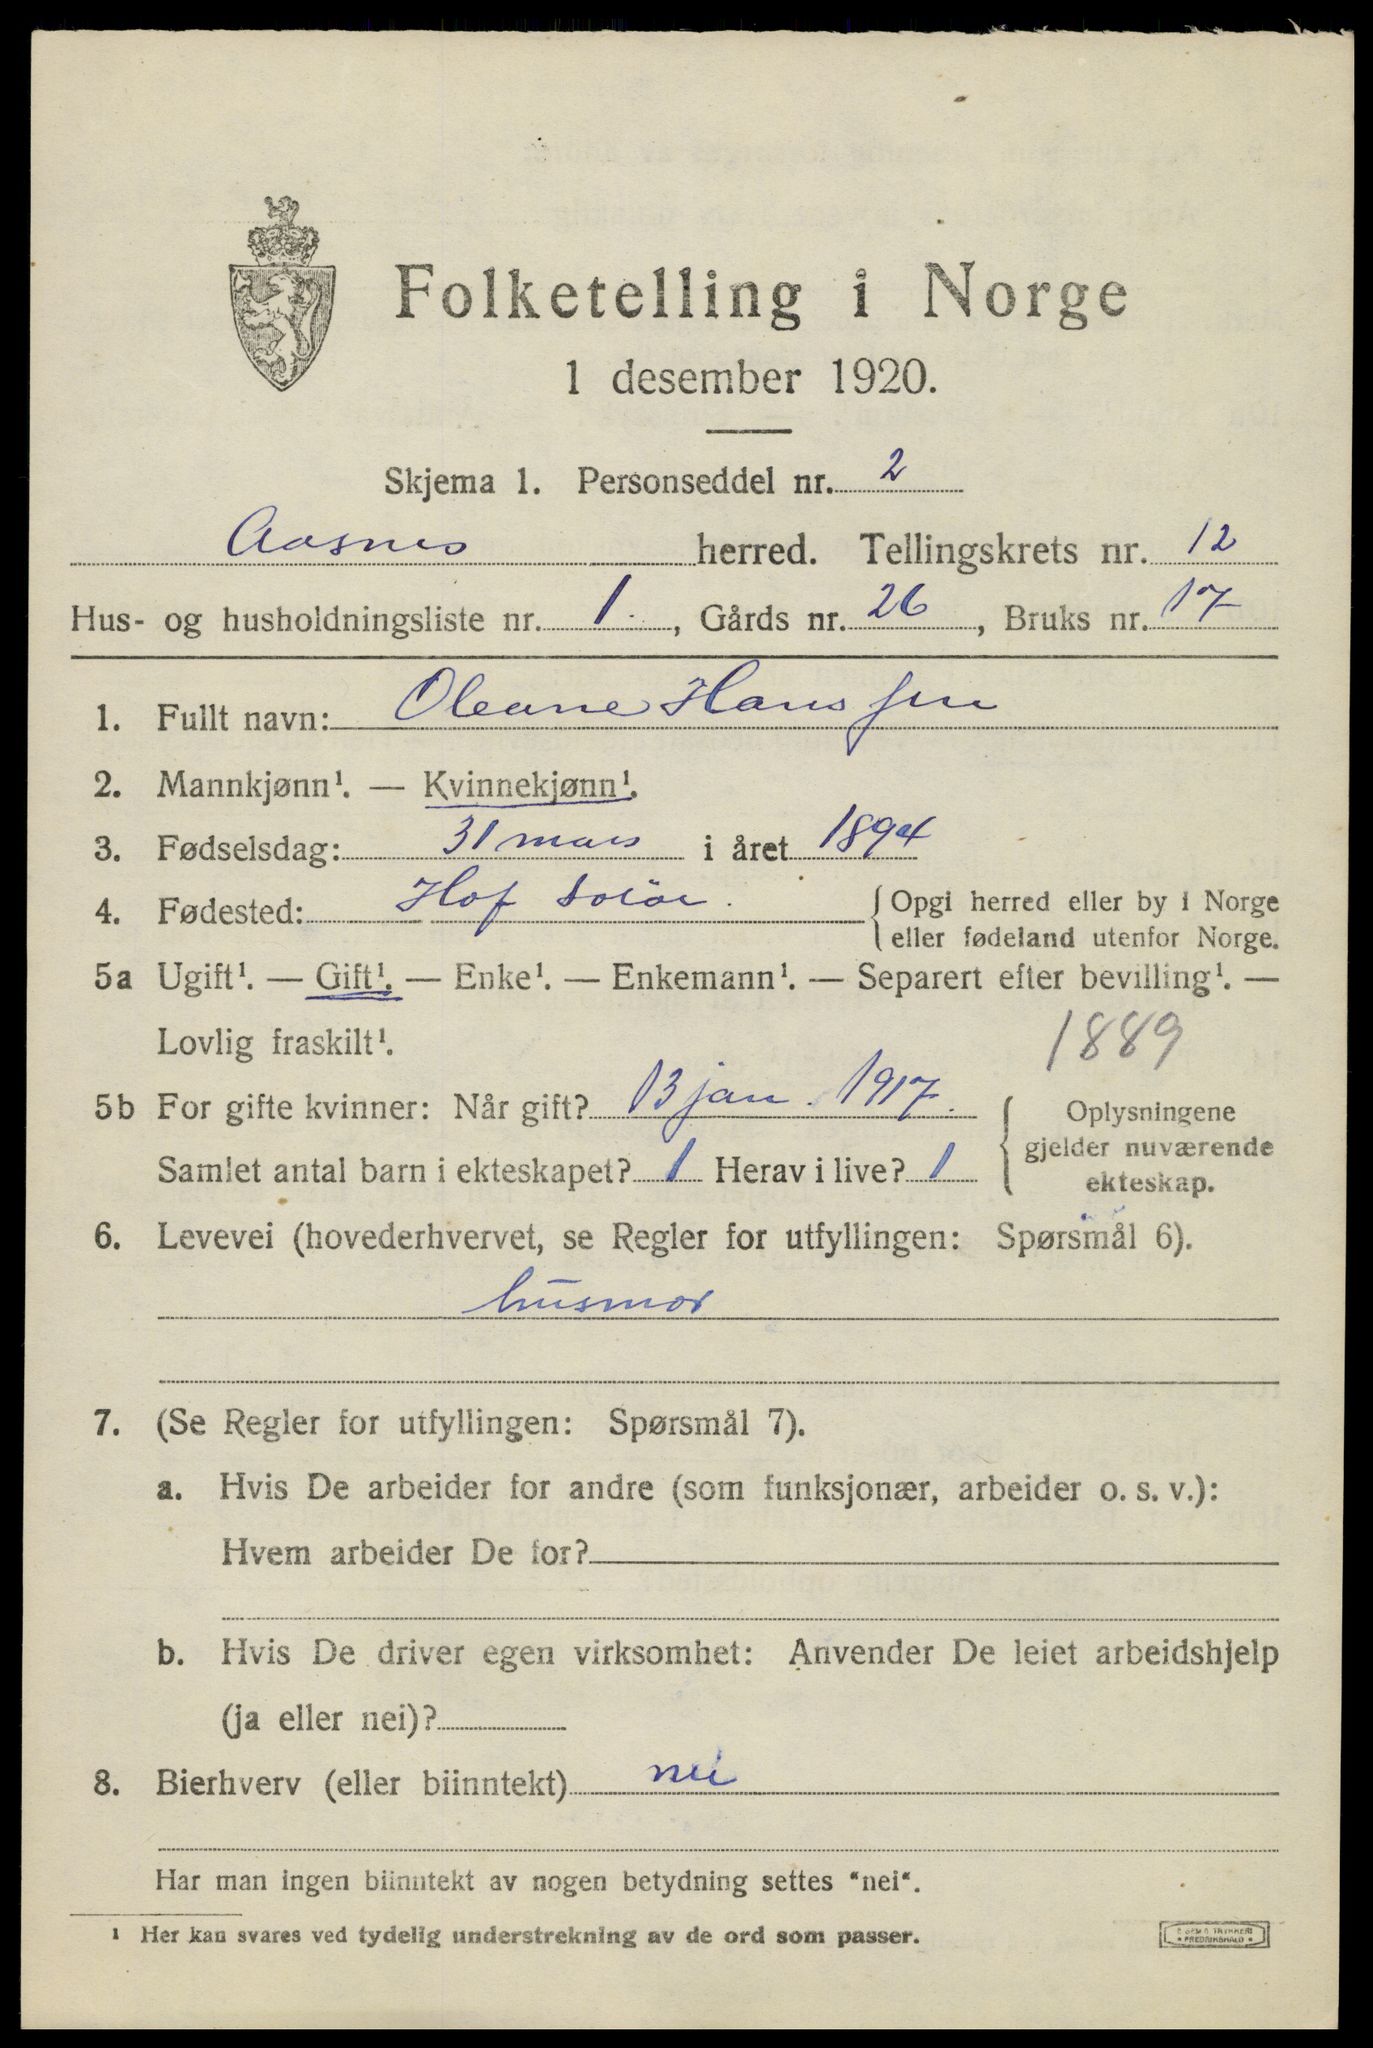 Folketelling i Norge
1 desember 1920.
Skjema 1. Personseddel nr. 2
Aasnes herred. Tellingskrets nr. 12
Hus- og husholdningsliste nr. 1. , Gårds nr. 26 , Bruks nr. 17
1. Fullt navn: Oleane Hanssen
2. Mannkjønn¹. — Kvinnekjønn¹.
3. Fødselsdag: 31 mars i året 1894
4. Fødested: Hof Solör.
Opgi herred eller by i Norge
eller fødeland utenfor Norge.
5a Ugift¹. — Gift¹. — Enke¹. — Enkemann¹. — Separert efter bevilling¹. —
Lovlig fraskilt¹.
1889
5b For gifte kvinner: Når gift? 13 jan. 1917.
Samlet antal barn i ekteskapet? 1 Herav i live? 1
Oplysningene
gjelder nuværende
ekteskap.
6. Levevei (hovederhvervet, se Regler for utfyllingen: Spørsmål 6).
husmor
7. (Se Regler for utfyllingen: Spørsmål 7).
a. Hvis De arbeider for andre (som funksjonær, arbeider o. s. v.):
Hvem arbeider De for?
b. Hvis De driver egen virksomhet: Anvender De leiet arbeidshjelp
(ja eller nei)?
8. Bierhverv (eller biinntekt) nei
Har man ingen biinntekt av nogen betydning settes "nei".
¹ Her kan svares ved tydelig understrekning av de ord som passer.
FREDRIKSHALD